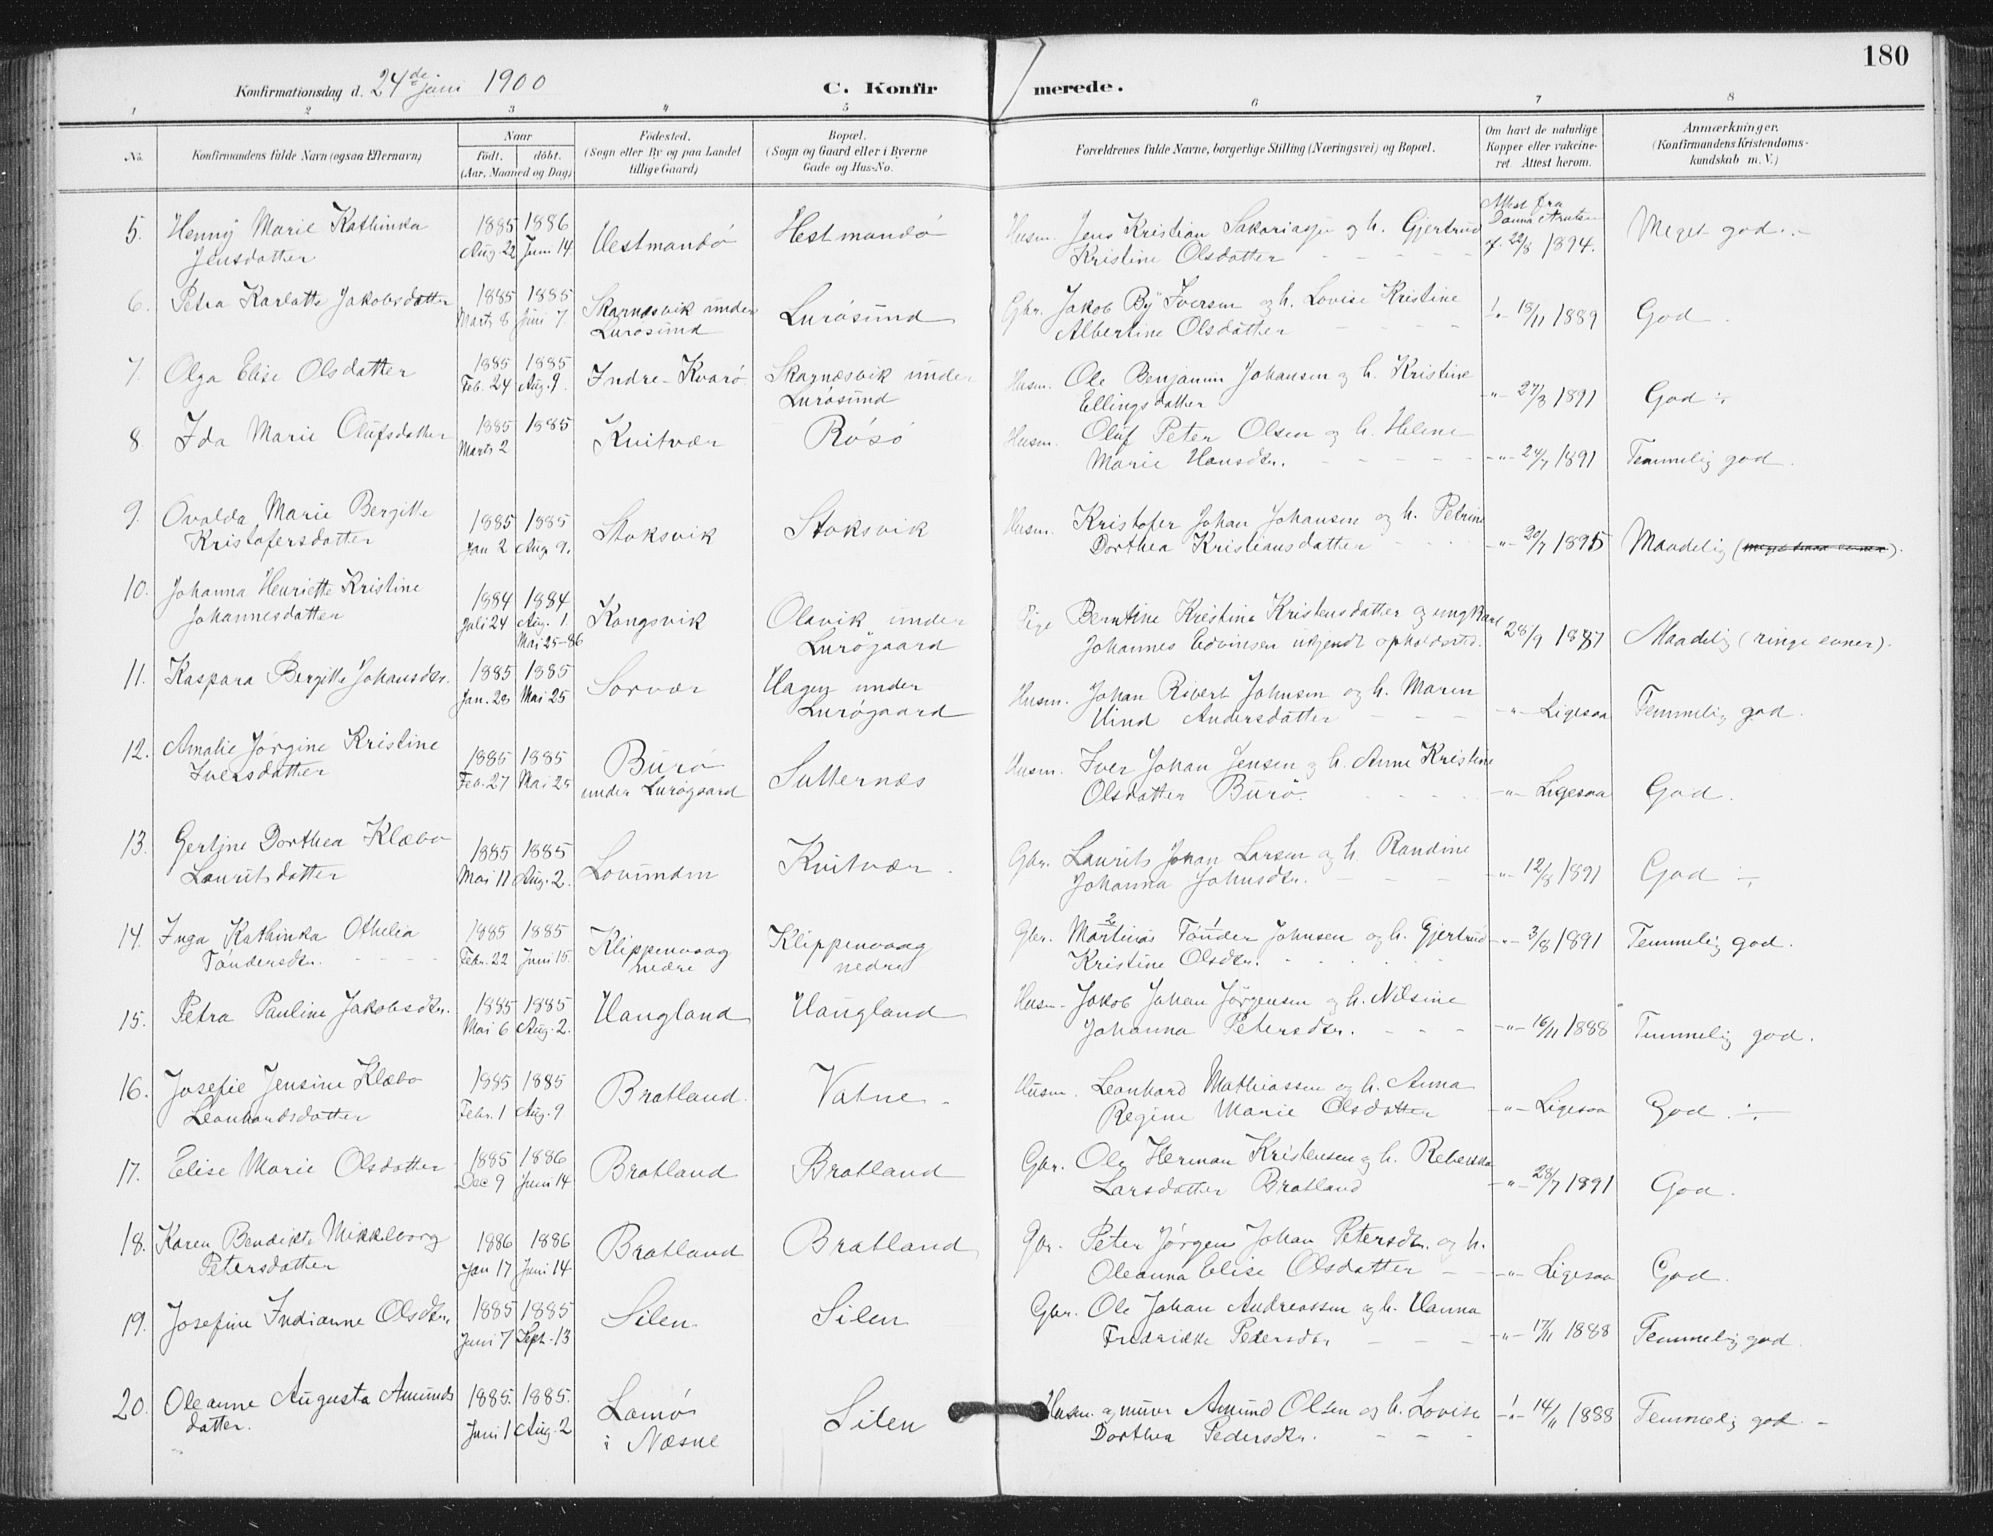 180
Konfirmationsdag d. 24de Juni 1900 C. Konfir merede.
1 2 3 4 5 6 7 8
No. Konfirmandens fulde Navn (ogsaa Efternavn) Naar født. døbt. (Aar, Maaned og Dag) Fødested. (Sogn eller By og paa Landet tillige Gaard) Bopæl. (Sogn og Gaard eller i Byerne Gade og Hus-No. Forældrenes fulde Navne, borgerlige Stilling (Næringsvei) og Bopæl. Om havt de naturlige Kopper eller vakcineret Attest herom. Anmærkninger. (Konfirmandens Kristendomskundskab m. V.)
5. Henny Marie Kathinka 1885 1886 Hestmandø Hestmandø Husm. Jens Kristian Sakariasen og h. Gjertrud Attest fra Meget god.
Jensdatter Aug 22 Juni 14 Kristine Olsdatter 22/8 1894.
6. Petra Karlotte Jakobsdatter 1885 1885 Skarnæsvik under Lurøsund Gbr. Jakob By Iversen og h. Lovise Kristine 13/11 1889 God.
Marts 8 Juni 7 Lurøsund Albertine Olsdatter
7. Olga Elise Olsdatter 1885 1885 Indre-Kvarø Skarnæsvik under Husm. Ole Benjamin Johansen og h. Kristine 27/3 1891 God
Feb. 24 Aug. 9. Lurøsund Ellingsdatter
8 Ida Marie Olufsdatter 1885 1885 Kvitvær Røsø Husm. Oluf Peter Olsen og h. Helene
Marts 2 Marie Hansdtr. -"- 24/7 1891 Temmelig god.
9. Ovalda Marie Bergitte 1885 1885 Stoksvik Stoksvik Husm. Kristofer Johan Johansen og h. Petrine
Kristofersdatter Jan 2 Aug. 9. Dorthea Kristiansdatter -"- 20/7 1895 Maadelig
10. Johanna Henriette Kristine 1884 1884 Kongsvik Olavik under Pige Berntine Kristine Kristensdatter og ungkarl
Johannesdatter Juli 24 Aug. 1 Mai 25-86 Lurøgaard Johannes Edvinsen ukjendt opholdssted. 28/9 1887 Maadelig (ringe evner).
11. Kaspara Bergitte Johansdtr. 1885 1885 Sørvær Hagen under Husm. Johan Rivert Johnsen og h. Maren
Jan. 28 Mai 25 Lurøgaard Hind Andersdatter -"- Ligesaa Temmelig god.
12. Amalie Jørgine Kristine 1885 1885 Burø Sutternæs Husm. Iver Johan Jensen og h. Anne Kristine
Iversdatter Feb. 27 Mai 25 under Lurøgaard Olsdatter Burø. -"- Ligesaa God.
13. Gertine Dorthea Klæbo 1885 1885 Lovunden Kvitvær. Gbr. Laurits Johan Larsen og h. Randine
Lauritsdatter Mai 11 Aug. 2. Johanna Johnsdtr. -"- 12/8 1891 God
14. Inga Kathinka Othelia 1885 1885 Klippenvaag Klippenvaag Gbr. Martinus Tønder Johnsen og h. Gjertrud -"- 3/8 1891 Temmelig god.
Tøndersdtr. Febr. 22 Juni 15 nedre nedre Kristine Olsdtr.
15. Petra Pauline Jakobsdtr. 1885 1885 Haugland Haugland Husm. Jakob Johan Jørgensen og h. Nilsine
Mai 6 Aug. 2. Johanna Petersdtr. -"- 16/11 1888 Temmelig god.
16. Josefie Jensine Klæbo 1885 1885 Bratland. Vatne. Husm. Leonhard Mathiassen og h. Anna
Leonhardsdatter Febr. 1 Aug. 9 Regine Marie Olsdatter -"- Ligesaa God.
17. Elise Marie Olsdatter 1885 1886 Bratland Bratland Gbr. Ole Herman Kristensen og h. Rebekka
Dec 9 Juni 14 Larsdatter Bratland -"- 28/7 1891 God.
18. Karen Bendikte Mikkelborg 1886 1886 Bratland Bratland Gbr. Peter Jørgen Johan Petersdtr. og h.
Petersdatter Jan 17 Juni 14 Oleanna Elise Olsdatter -"- Ligesaa God.
19. Josefine Indianne Olsdtr. 1885 1885 Silen. Silen Gbr. Ole Johan Andreassen og h. Hanna
Juni 7 Sept. 13 Fredrikke Pedersdtr. -"- 17/11 1888 Temmelig god
20. Oleanne Augusta Amunds 1885. 1885. Lamø Silen Husm. og murer Amund Olsen og h. Lovise -"- 14/11 1888 Temmelig god.
datter. Juni 1 Aug. 2 i Næsne Dorthea Pedersdtr.